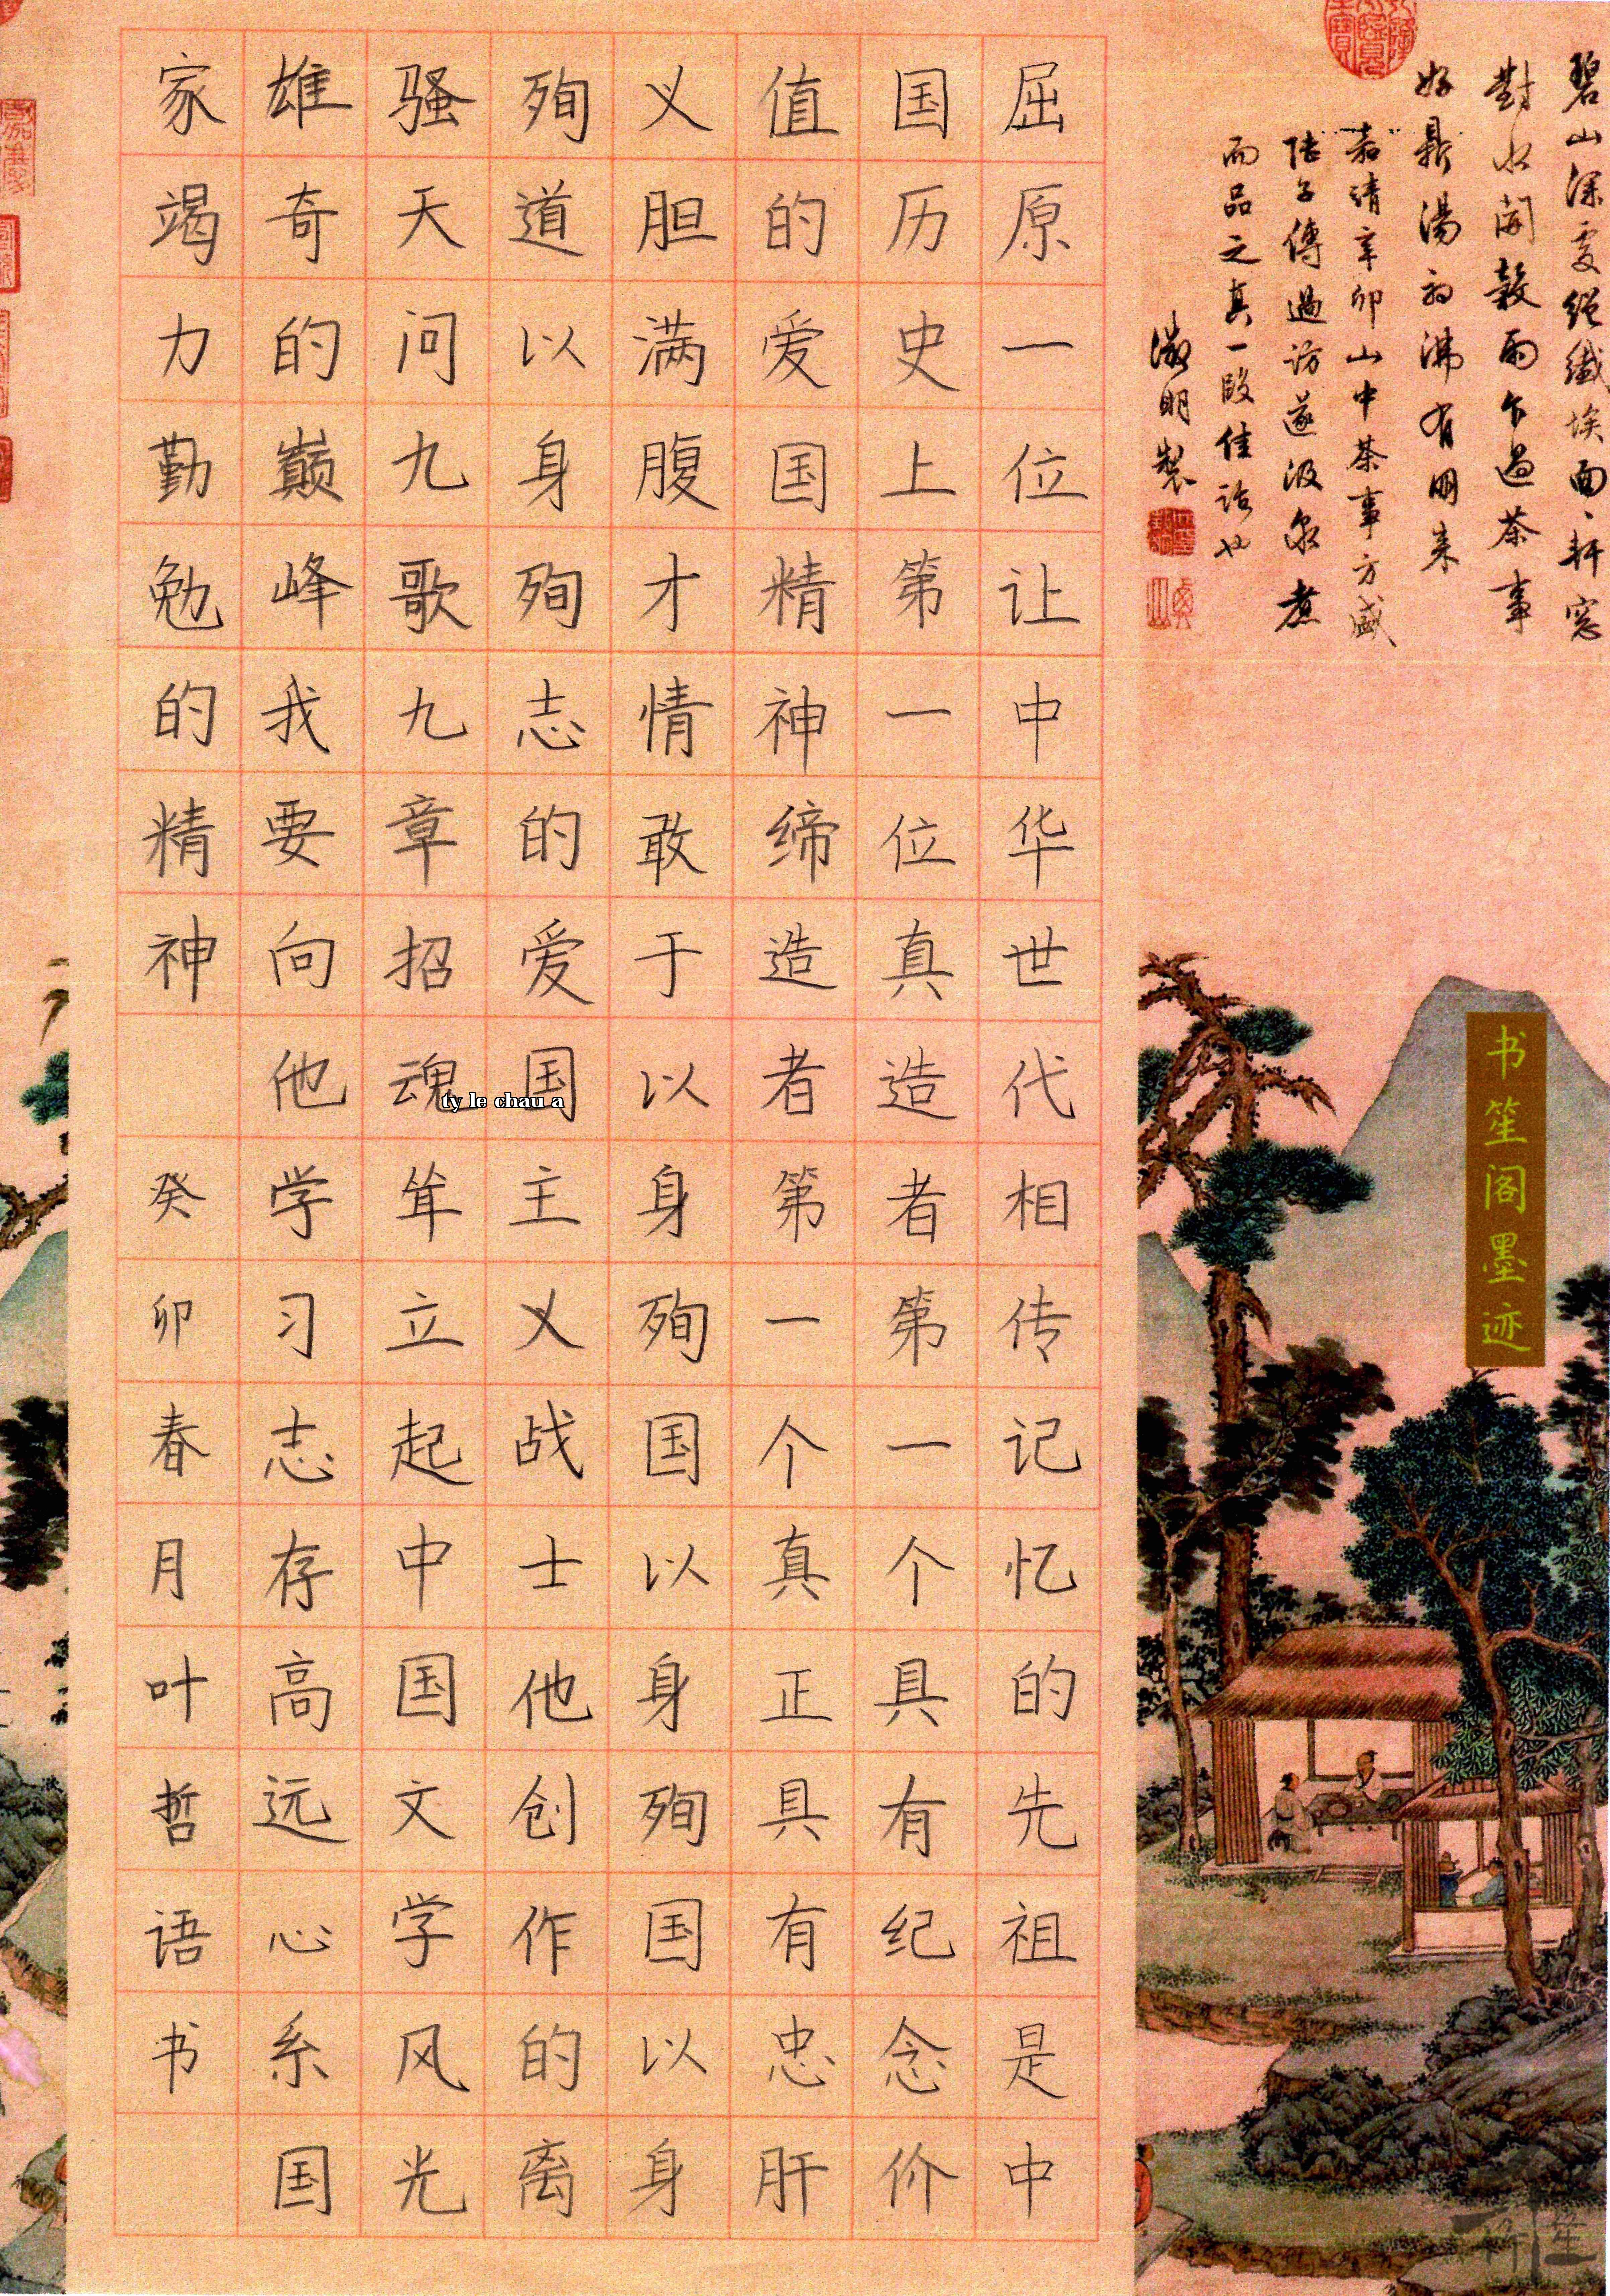 碧山深處絕纖埃面面軒窓
對水開穀雨乍過茶事
好鼎湯初沸有朋来
嘉靖辛卯山中茶事方盛
陸子傅過訪遂汲泉煮
而品之真一段佳話也
徵明製
书笙阁墨迹
屈原一位让中华世代相传记忆的先祖是中
国历史上第一位真造者第一个具有纪念价
值的爱国精神缔造者第一个真正具有忠肝
义胆满腹才情敢于以身殉国以身殉国以身
殉道以身殉志的爱国主义战士他创作的离
骚天问九歌九章招魂耸立起中国文学风光
雄奇的巅峰我要向他学习志存高远心系国
家竭力勤勉的精神
癸卯春月叶哲语书
ty le chau a